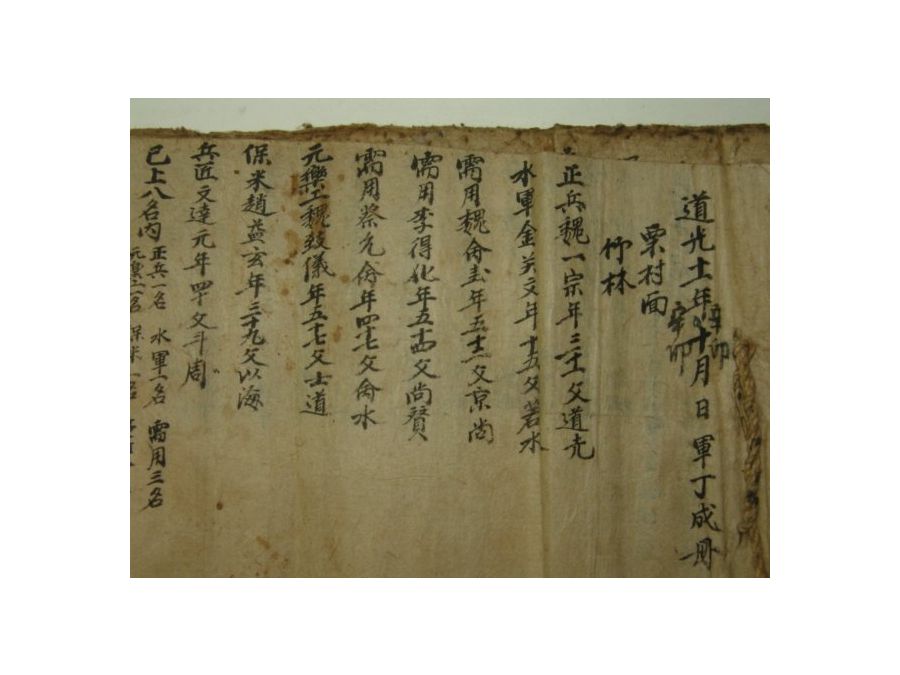 道光十一年十月 日 軍丁成冊
辛卯
辛卯
栗村面
竹林
正兵魏一宗年三十 父道光
水軍金 文年十五父若水
需用魏 年五十 父京尚
需用李得化年五十四父尚贊
需用蔡允 年四十七父 水
元樂工魏致儀年五十七父士道
保米趙益玄年三十九父以海
兵匠文達元年四十父斗周
已上八名內 正兵一名 水軍一名 需用三名
元樂工一名 保米一名